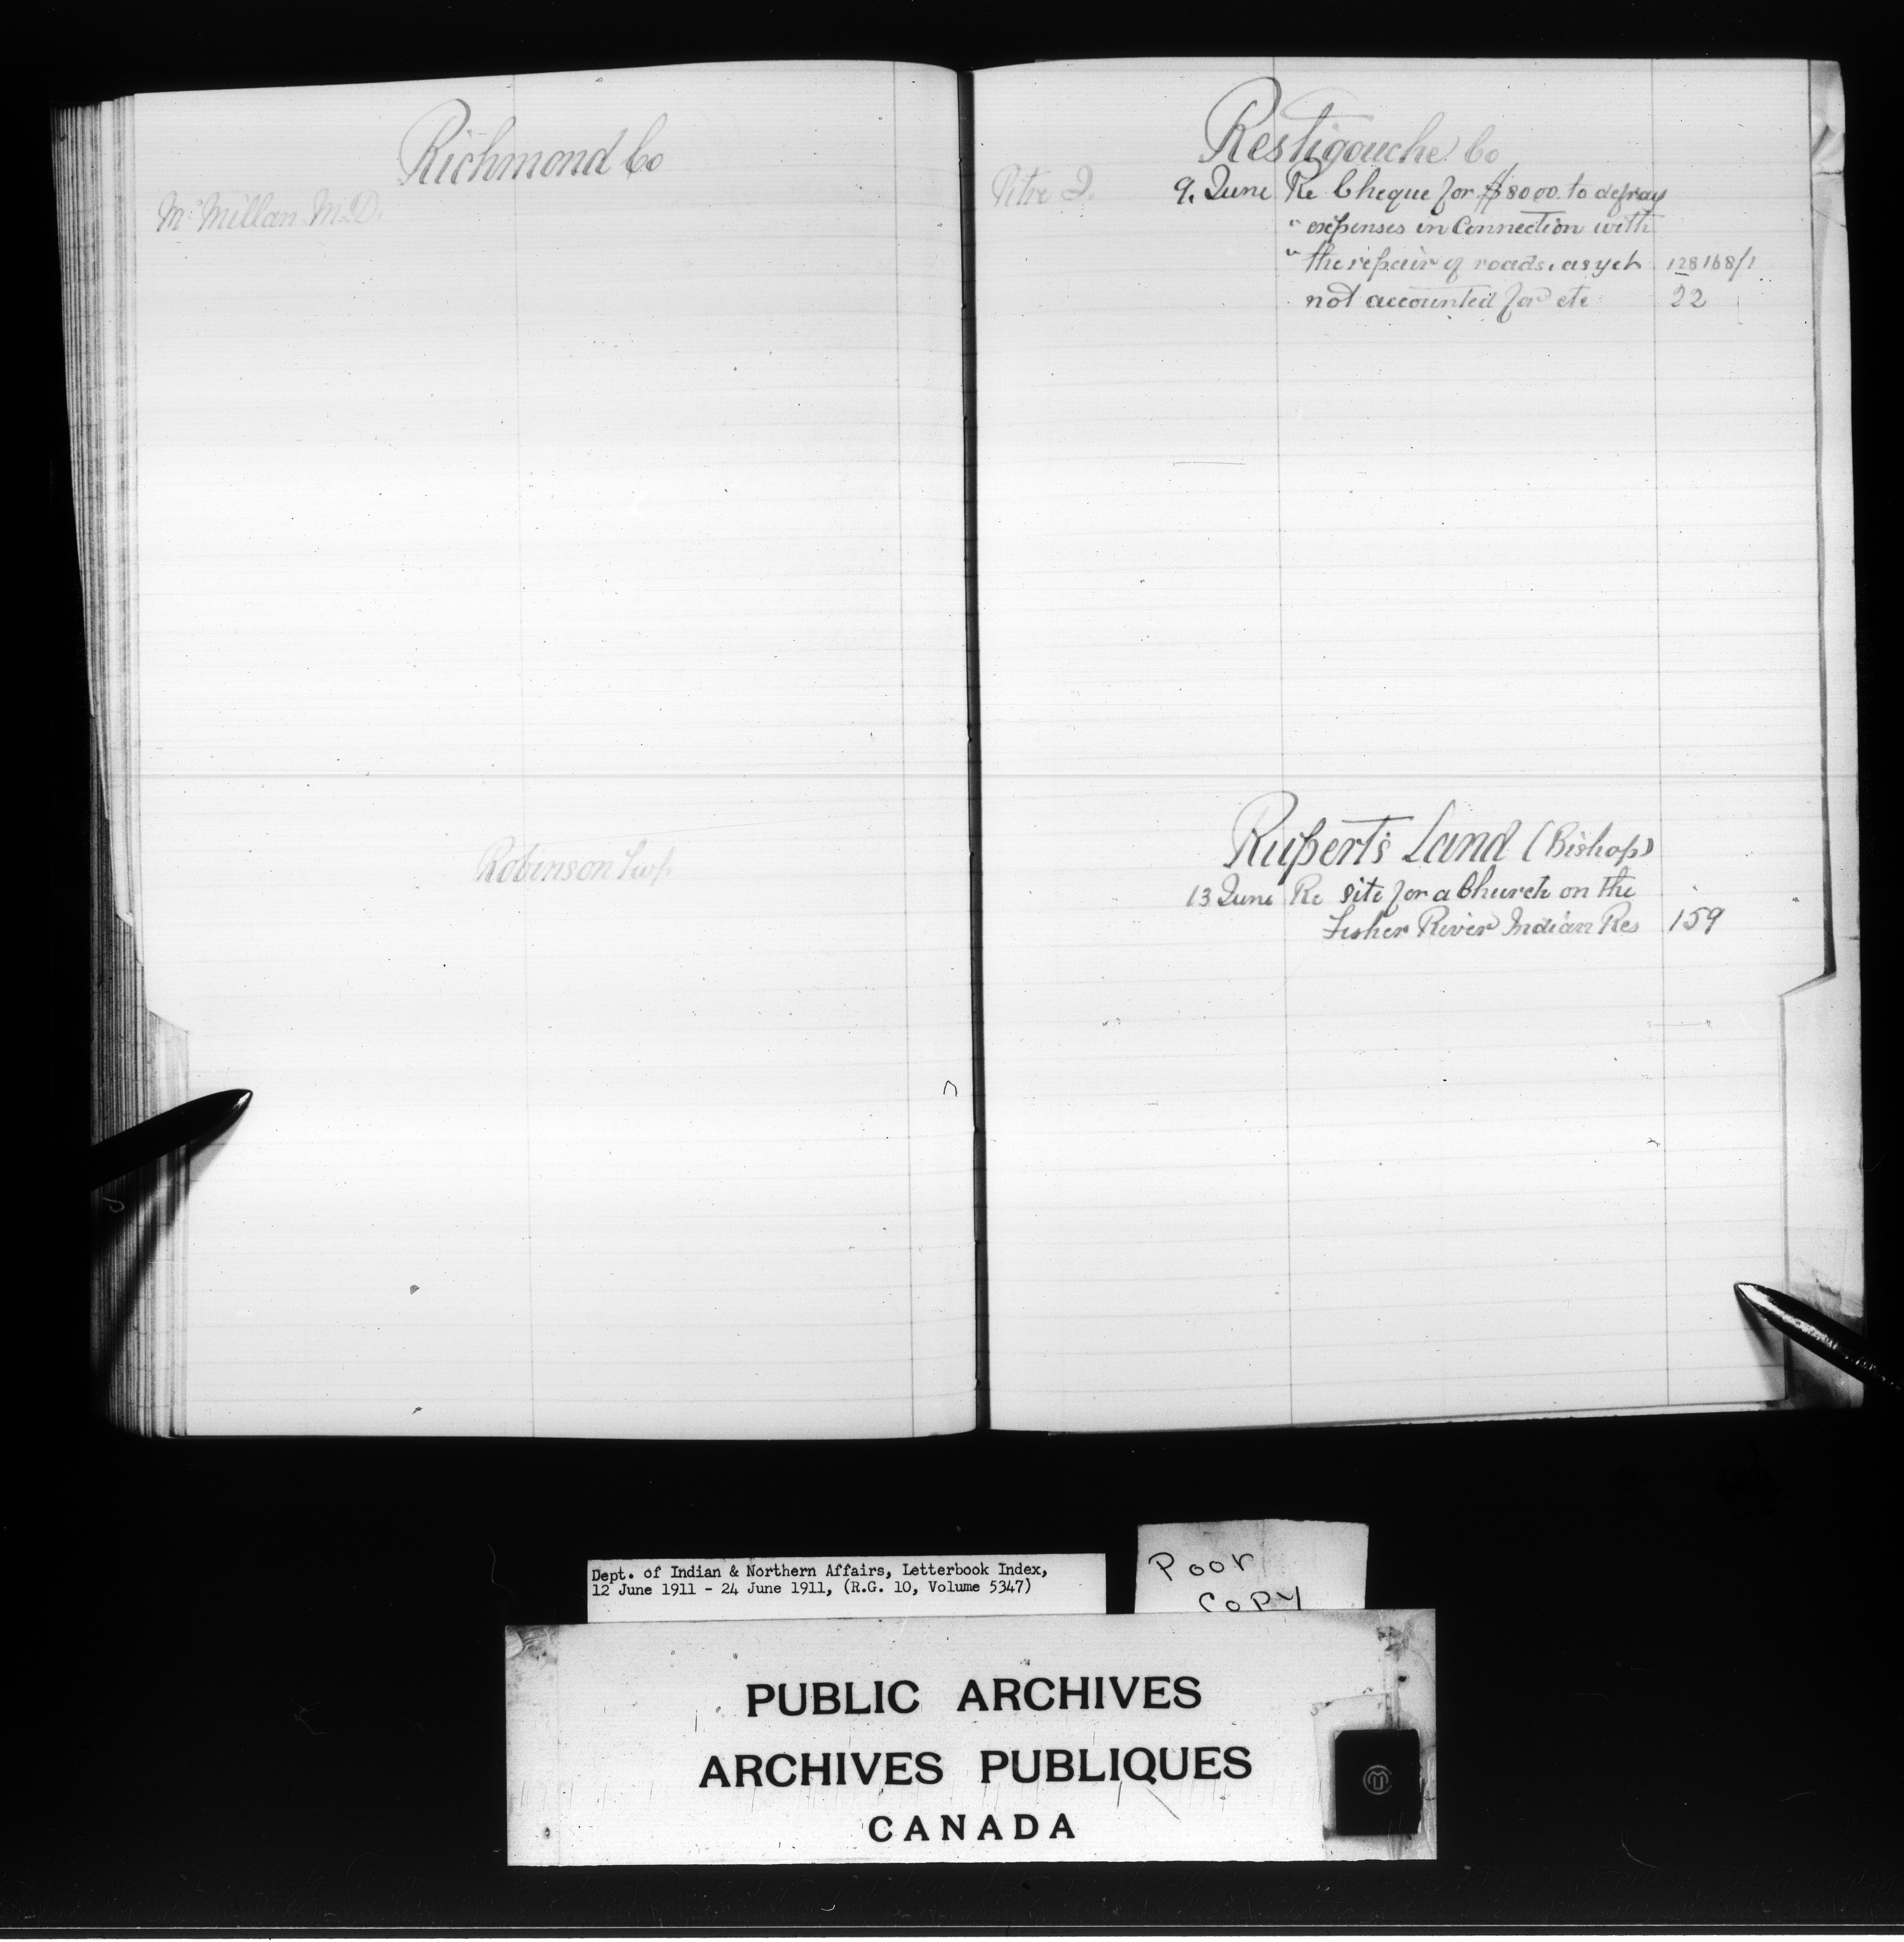 Richmond Co
McMillan M.D.
Robinson Twp
Restigouche Co
Pitre J. 9. June Re Cheque for $8000. to defray
" expenses in Connection with
" the repair of roads, as yet 128168/1
not accounted for etc 22
Rupert's Land (Bishop)
13 June Re site for a Church on the
Fisher River Indian Res 159
Dept. of Indian & Northern Affairs, Letterbook Index,
12 June 1911 - 24 June 1911, (R.G. 10, Volume 5347)
Poor
Copy
PUBLIC ARCHIVES
ARCHIVES PUBLIQUES
CANADA